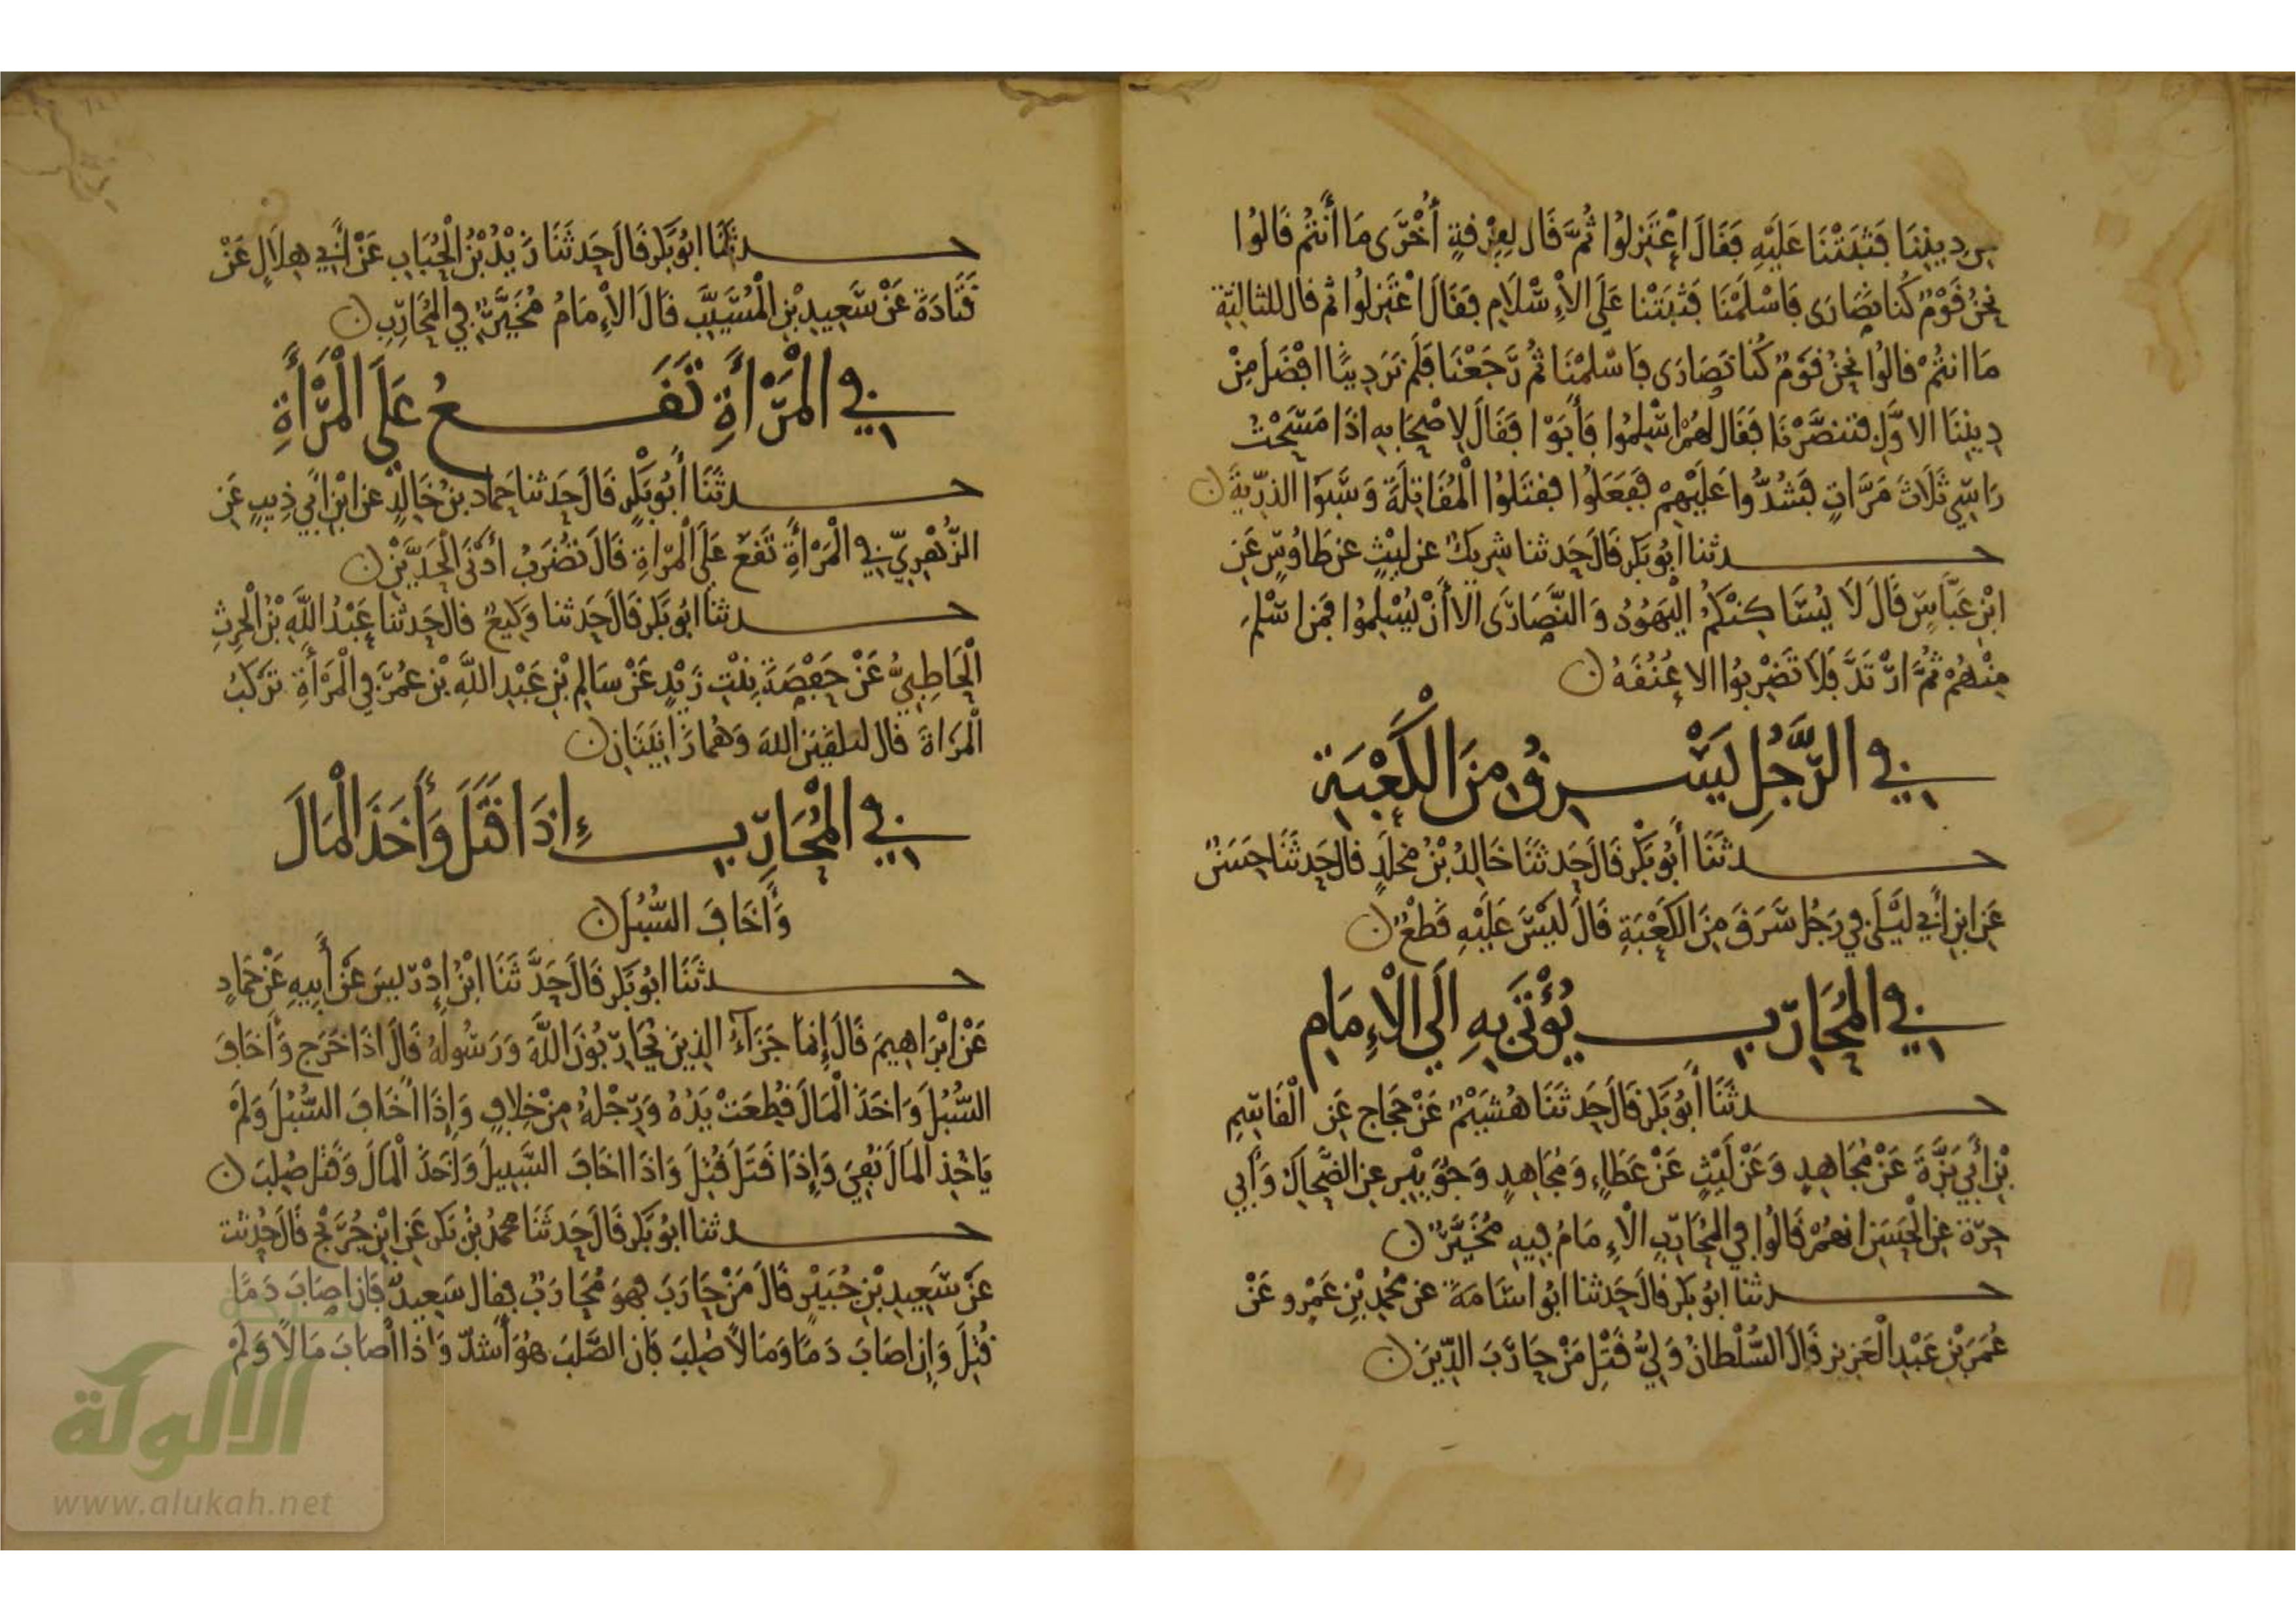 من ديننا فثبتنا عليه فقال اعتزلوا ثم قال لفرقة أخرى ما أنتم قالوا
نحن قوم كنا نصارى فاسلمنا فثبتنا على الإسلام فقال اعتزلوا ثم قال للثالثة
ما انتم قالوا نحن قوم كنا نصارى فاسلمنا ثم رجعنا فلم نر دينا افضل من
ديننا الاول فتنصرنا فقال لهم اسلموا فأبوا فقال لاصحابه اذا مسحت
راسي ثلاث مرات فشدوا عليهم ففعلوا فقتلوا المقاتلة وسبوا الذرية ن
حدثنا ابو بكر قال حدثنا شريك عن ليث عن طاوس عن
ابن عباس قال لا يساكنكم اليهود والنصارى الا أن يسلموا فمن اسلم
منهم ثم ارتد فلا تضربوا الا عنقه ن
في الرجل يسرق من الكعبة
حدثنا أبو بكر قال حدثنا خالد بن مخلد قال حدثنا حسن
عن ابن أبي ليلى في رجل سرق من الكعبة قال ليس عليه قطع ن
في المحارب يؤتى به الى الإمام
حدثنا أبو بكر قال حدثنا هشيم عن حجاج عن القاسم
بن أبي بزة عن مجاهد وعن ليث عن عطاء ومجاهد وجويبر عن الضحاك وأبي
حرة عن الحسن انهم قالوا في المحارب الإمام فيه مخير ن
حدثنا ابو بكر قال حدثنا ابو اسامة عن محمد بن عمرو عن
عمر بن عبد العزيز قال السلطان ولي قتل من حارب الدين ن
حدثنا ابو بكر قال حدثنا زيد بن الحباب عن أبي هلال عن
قتادة عن سعيد بن المسيب قال الإمام مخير في المحارب ن
في المرأة تقع على المرأة
حدثنا أبو بكر قال حدثنا حماد بن خالد عن ابن أبي ذيب عن
الزهري في المرأة تقع على المراة قال تضرب أدنى الحدين ن
حدثنا ابو بكر قال حدثنا وكيع قال حدثنا عبد الله بن الحرث
الحاطبي عن حفصة بنت زيد عن سالم بن عبد الله بن عمر في المرأة تركب
المراة قال لتلقين الله وهما زانيتان ن
في المحارب إذا قتل وأخذ المال
وأخاف السبل ن
حدثنا ابو بكر قال حدثنا ابن إدريس عن أبيه عن حماد
عن ابراهيم قال إنما جزاء الذين يحاربون الله ورسوله قال اذا خرج وأخاف
السبل واخذ المال قطعت يده ورجله من خلاف وإذا اخاف السبل ولم
ياخذ المال نفي وإذا قتل قتل واذا اخاف السبيل واخذ المال وقتل صلب ن
حدثنا ابو بكر قال حدثنا محمد بن بكر عن ابن جريج قال حدثت
عن سعيد بن جبير قال من حارب فهو محارب فقال سعيد فان اصاب دما
قتل وإن اصاب دما ومالا صلب فان الصلب هو أشد واذا أصاب مالا ولم
الألوكة
www.alukah.net